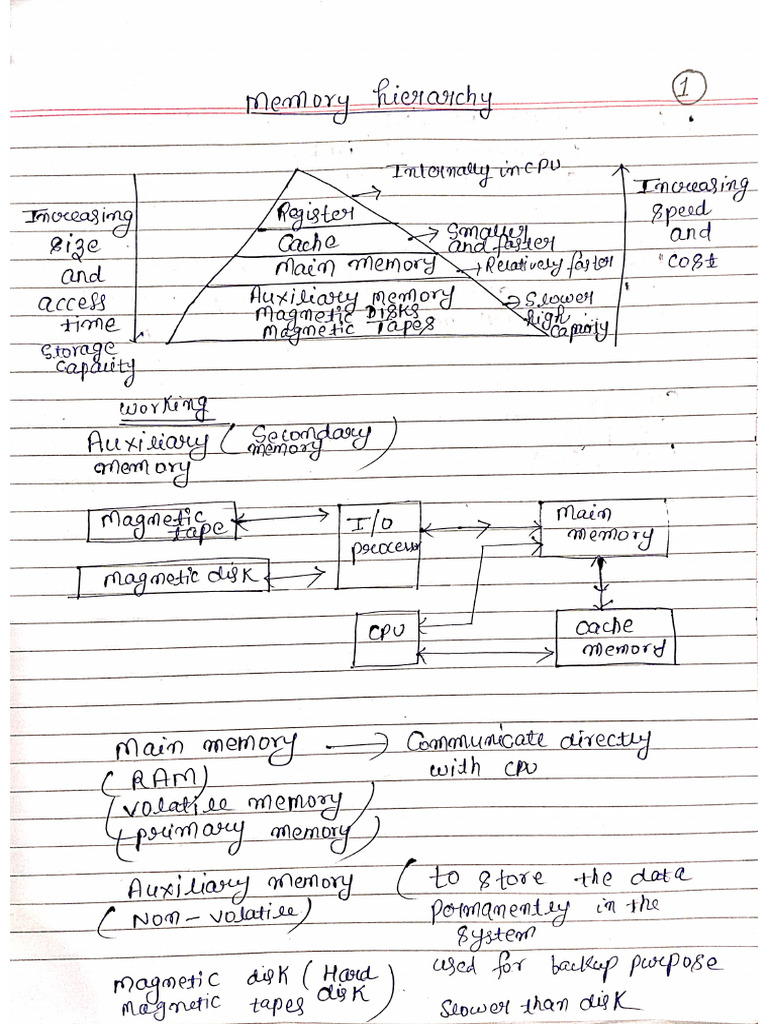 1
Memory hierarchy
Internally in CPU
Increasing
size
and
access
time
storage
capacity
Register
Cache
Main memory
Auxiliary memory
Magnetic Disks
Magnetic Tapes
Smaller
and faster
Relatively faster
Slower
high
capacity
Increasing
speed
and
cost
Working
Auxiliary (Secondary
memory memory)
Magnetic
tape
I/O
processor
Main
memory
Magnetic disk
CPU
Cache
memory
Main memory → Communicate directly
(RAM) with CPU
(volatile memory)
(primary memory)
Auxiliary memory (to store the data
(Non-volatile) permanently in the
system
Magnetic disk (Hard used for backup purpose
Magnetic tapes disk) slower than disk